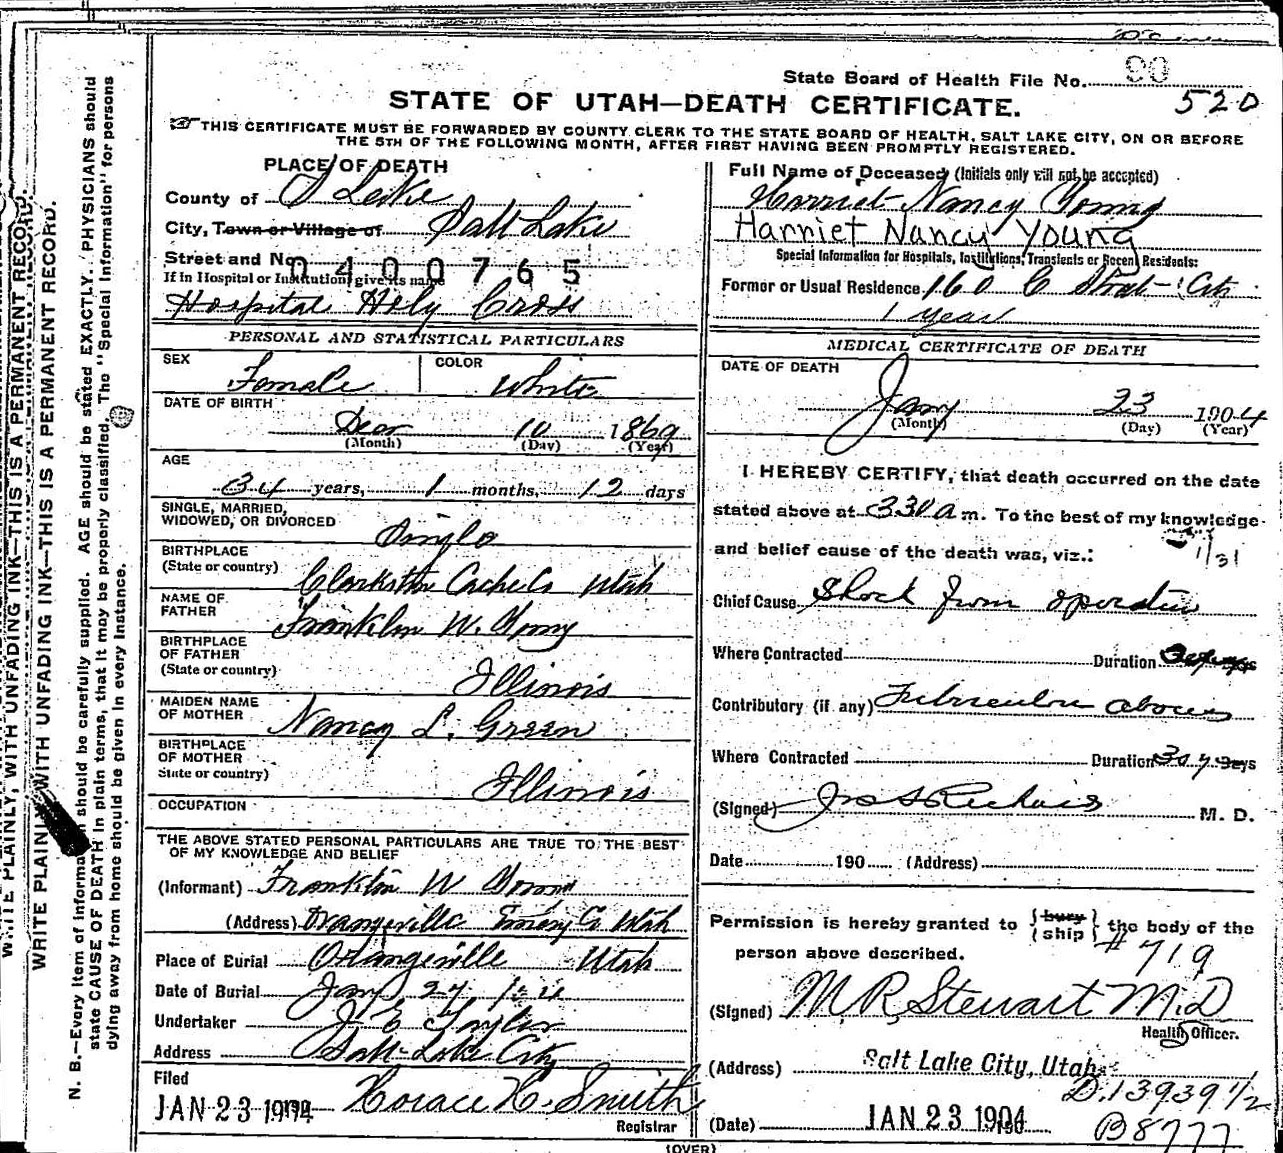 State Board of Health File No. 90
520
STATE OF UTAH—DEATH CERTIFICATE.
THIS CERTIFICATE MUST BE FORWARDED BY COUNTY CLERK TO THE STATE BOARD OF HEALTH, SALT LAKE CITY, ON OR BEFORE
THE 5TH OF THE FOLLOWING MONTH, AFTER FIRST HAVING BEEN PROMPTLY REGISTERED.
PLACE OF DEATH
County of S Lake
City, Town or Village of Salt Lake
Street and No.
0400765
If in Hospital or Institution, give its name
Hospital Holy Cross
Full Name of Deceased (Initials only will not be accepted)
Harriet Nancy Young
Harriet Nancy Young
Special Information for Hospitals, Institutions, Transients or Recent Residents:
Former or Usual Residence 160 C Street City
1 year
PERSONAL AND STATISTICAL PARTICULARS
SEX Female
COLOR White
DATE OF BIRTH
Dec 10 1869
(Month) (Day) (Year)
AGE
34 years, 1 months, 12 days
SINGLE, MARRIED,
WIDOWED, OR DIVORCED Single
BIRTHPLACE
(State or country) Clarkston Cache Co Utah
NAME OF
FATHER Franklin W. Young
BIRTHPLACE
OF FATHER
(State or country) Illinois
MAIDEN NAME
OF MOTHER Nancy L. Green
BIRTHPLACE
OF MOTHER
State or country) Illinois
OCCUPATION
THE ABOVE STATED PERSONAL PARTICULARS ARE TRUE TO THE BEST
OF MY KNOWLEDGE AND BELIEF
(Informant) Franklin W Young
(Address) Orangeville Emery Co Utah
Place of Burial Orangeville Utah
Date of Burial Jany 27
Undertaker J E Taylor
Address Salt Lake City
Filed
JAN 23 1904 Horace H. Smith
Registrar
MEDICAL CERTIFICATE OF DEATH
DATE OF DEATH
Jany 23 1904
(Month) (Day) (Year)
I HEREBY CERTIFY, that death occurred on the date
stated above at 330 a m. To the best of my knowledge
and belief cause of the death was, viz.:
1/31
Chief Cause Shock from operation
Where Contracted Duration
Contributory (if any) Tubercular abscess
Where Contracted Duration Days
(Signed) M. D.
Date 190 (Address)
Permission is hereby granted to {bury ship} the body of the
person above described. # 719
(Signed) M R Stewart M.D.
Health Officer.
(Address) Salt Lake City, Utah.
D.13939 1/2
(Date) JAN 23 1904
B8777
(OVER)
WRITE PLAINLY, WITH UNFADING INK—THIS IS A PERMANENT RECORD.
WRITE PLAINLY WITH UNFADING INK—THIS IS A PERMANENT RECORD.
N. B.—Every item of information should be carefully supplied. AGE should be stated EXACTLY. PHYSICIANS should
state CAUSE OF DEATH in plain terms, that it may be properly classified. The "Special Information" for persons
dying away from home should be given in every instance.